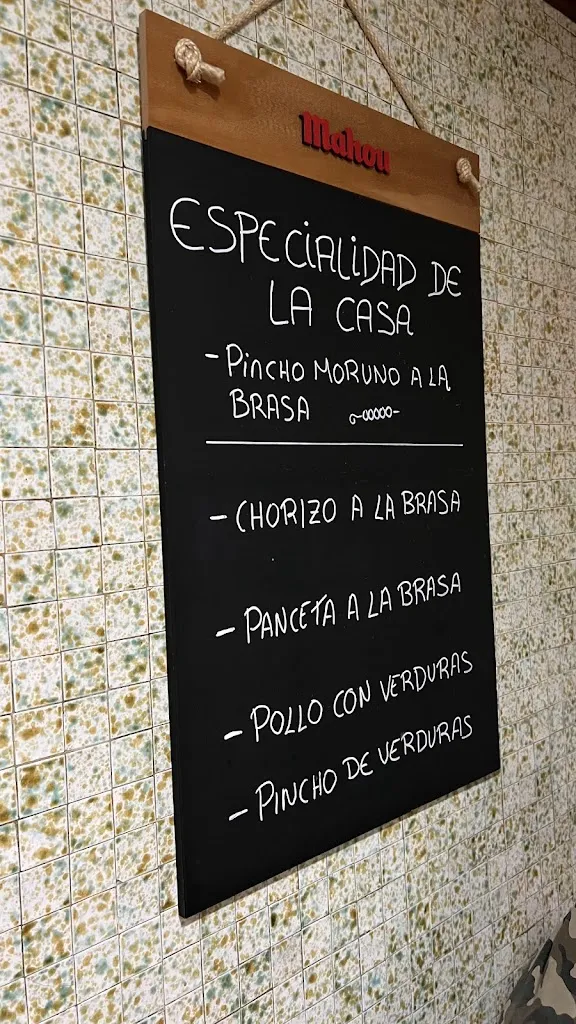 Mahou
ESPECIALIDAD DE
LA CASA
- PINCHO MORUNO A LA
BRASA
- CHORIZO A LA BRASA
- PANCETA A LA BRASA
- POLLO CON VERDURAS
- PINCHO DE VERDURAS